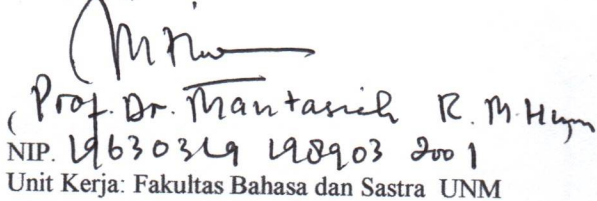 ( Prof. Dr. Mantasiah R. M. Hum
NIP. 19630319 198903 2001
Unit Kerja: Fakultas Bahasa dan Sastra UNM